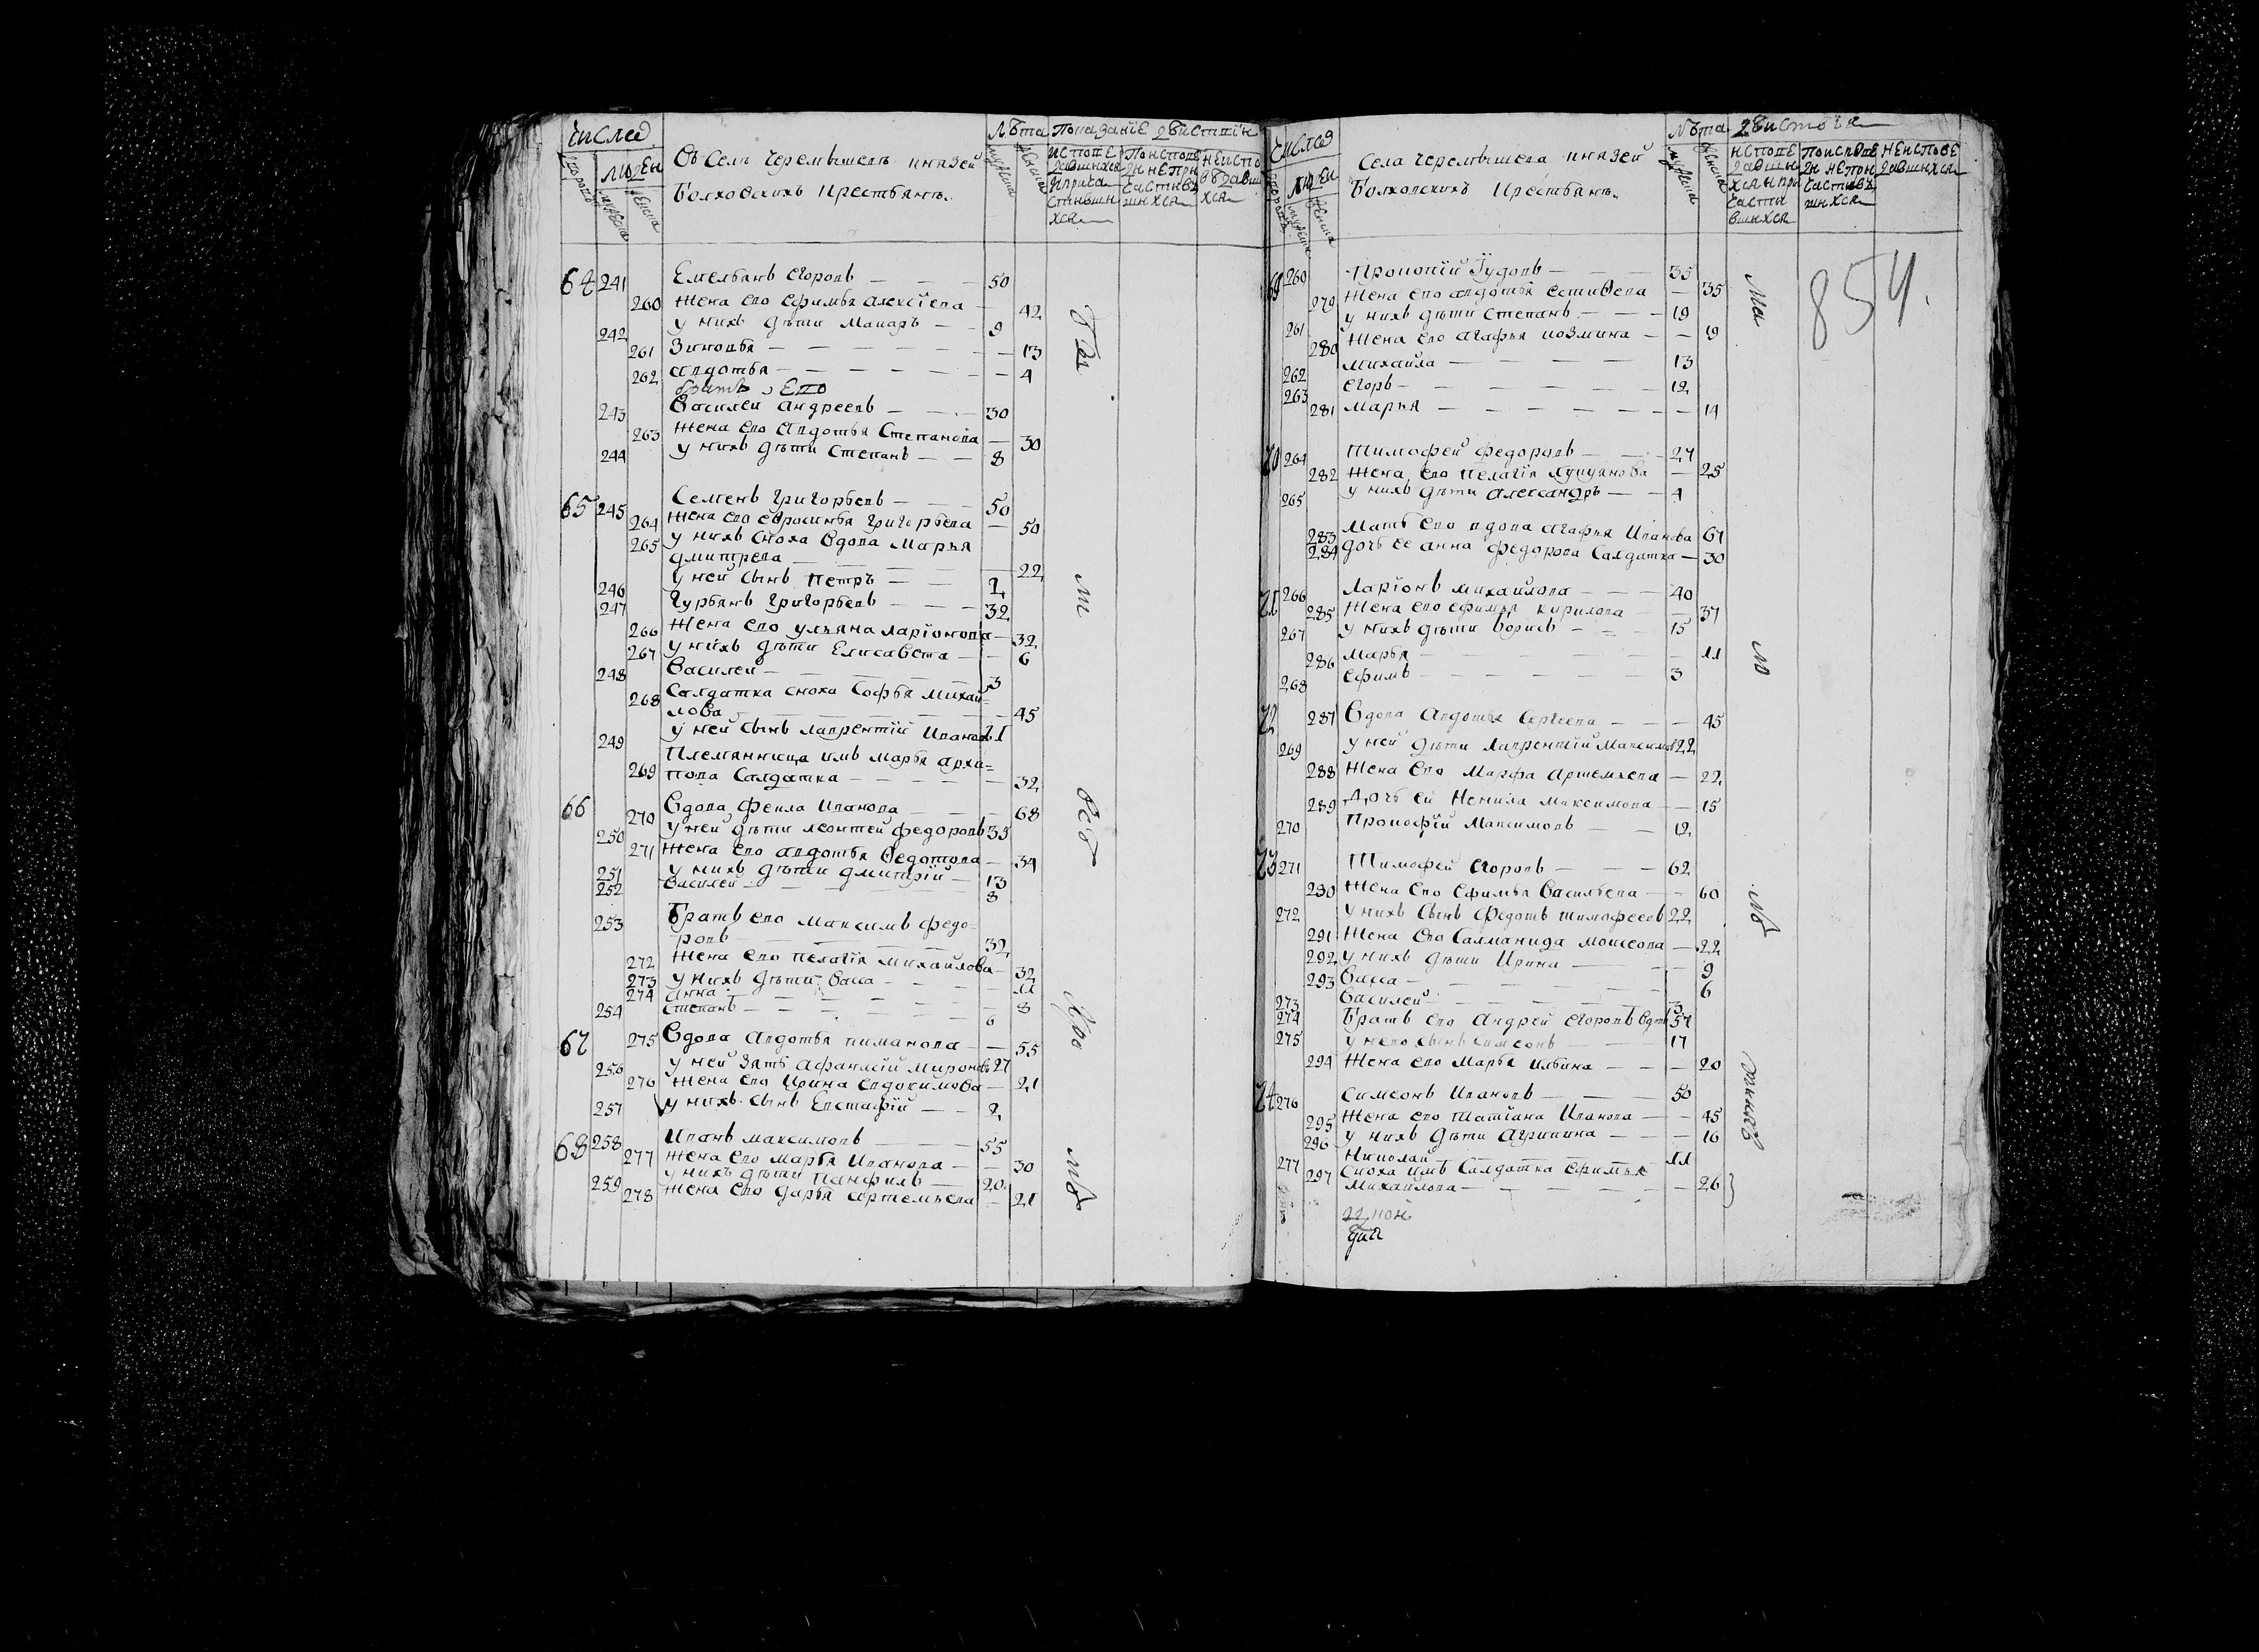 Числа
Люден
Въ Селѣ Черемышевѣ князей
Болховскихъ Крестьянъ
Лѣта
Показанїе действїи
исповедавшихся и причастившихся
По исповеди не причастившихся
не исповедавшихся
64 241 Емельянъ Егоровъ — 50
260 Жена ево Ефимья Алексїева — 42
242 у нихъ дѣти Макаръ — 9
261 Зиновья — 13
262 Авдотья — 4
братъ Ево
243 Василеи Андреевъ — 30
263 Жена ево Авдотья Степанова — 30
244 у нихъ дѣти Степанъ — 8
65 245 Семенъ Григорьевъ — 50
264 Жена ево Еѳросинья Григорьева — 50
265 у нихъ сноха вдова Марья
Дмитрева — 22
246 у ней сынъ Петръ — 2
247 Гурьянъ Григорьевъ — 32
266 Жена ево Ульяна Ларїонова — 32
267 у нихъ дѣти Елисавета — 6
248 Василей — 3
268 Салдатка сноха Софья Михай=
лова — 45
249 у ней сынъ Лаврентїй Ивановъ 21
Племянница имъ Марья Архи=
269 пова Салдатка — 32
66 270 Вдова Фекла Иванова — 68
250 у ней дѣти Леонтей Федоровъ 35
271 Жена ево Авдотья Ѳедотова — 34
251 у нихъ дѣти Дмитрїй — 13
252 Василей — 8
253 Братъ ево Максимъ Федо=
ровъ — 32
272 Жена ево Пелагїя Михайлова — 32
273 у нихъ дѣти Васса — 11
274 Анна — 8
254 Степанъ — 6
67 275 Вдова Авдотья Киманова — 55
256 у ней зять Афанасїй Мироновъ 27
276 Жена ево Ирина Евдокимова — 21
257 у нихъ сынъ Евстафїй — 2
68 258 Иванъ Максимовъ — 55
277 Жена ево Марья Иванова — 30
259 у нихъ дѣти Панфилъ — 20
278 Жена ево Дарья Артемьева — 21
Числа
Люден
Села Черемышева князей
Болховскихъ Крестьянъ
Лѣта
действїя
исповедавшихся и причастившихся
По исповеди не причастившихся
не исповедавшихся
854.
69 260 Прокопїй Іудовъ — 35
279 Жена ево Авдотья Естиѳева — 35
у нихъ дѣти Степанъ — 19
261
280 Жена ево Агафья Козмина — 19
262 Михайла — 13
263 Егоръ — 12
281 Марья — 14
70 264 Тимофей Федоровъ — 27
282 Жена ево Пелагїя Лукиянова — 25
265 у нихъ дѣти Александръ — 4
283 Мать ево вдова Агафья Иванова 67
284 Дочь ее Анна Федорова Салдатка — 30
71 266 Ларїонъ Михайлова — 40
285 Жена ево Ефимья Кирилова — 37
267 у нихъ дѣти Борисъ — 15
286 Марья — 11
268 Ефимъ — 3
72 287 Вдова Авдотья Сергеева — 45
269 у ней дѣти Лаврентїй Максимовъ 22
288 Жена ево Марфа Артемьева — 22
289 Дочь ей Ненила Максимова — 15
270 Прокофїй Максимовъ — 12
73 271 Тимофей Егоровъ — 62
290 Жена ево Ефимья Васильева — 60
272 у нихъ сынъ Федотъ Тимофеевъ 22
291 Жена ево Саламанида Моисеова — 22
292 у нихъ дѣти Ирина — 9
293 Васса — 6
273 Василей — 3
274 Братъ ево Андрей Егоровъ вдовъ 57
275 у нево сынъ Симеонъ — 17
294 Жена ево Марья Ильина — 20
74 276 Симеонъ Ивановъ — 50
295 Жена ево Татїана Иванова — 45
296 у нихъ дѣти Агрипина — 16
277 Николай — 11
297 Сноха имъ Салдатка Ефимья
Михайлова — 26